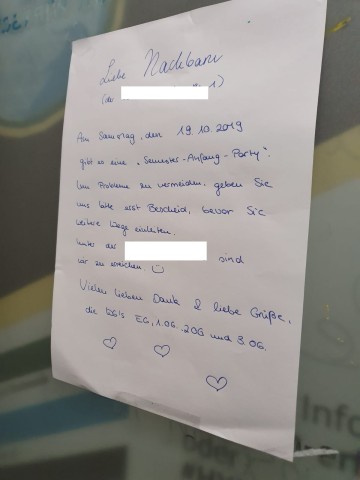 Liebe Nachbarn
Am Samstag, den 19.10.2019
gibt es eine „Semester-Anfang-Party".
Um Probleme zu vermeiden, geben Sie
uns bitte erst Bescheid, bevor Sie
weitere Wege einleiten.
Unter der sind
wir zu erreichen ☺
Vielen lieben Dank & liebe Grüße,
die WG's EG, 1.OG, 2OG und 3.OG.
♡ ♡ ♡
Info
oder